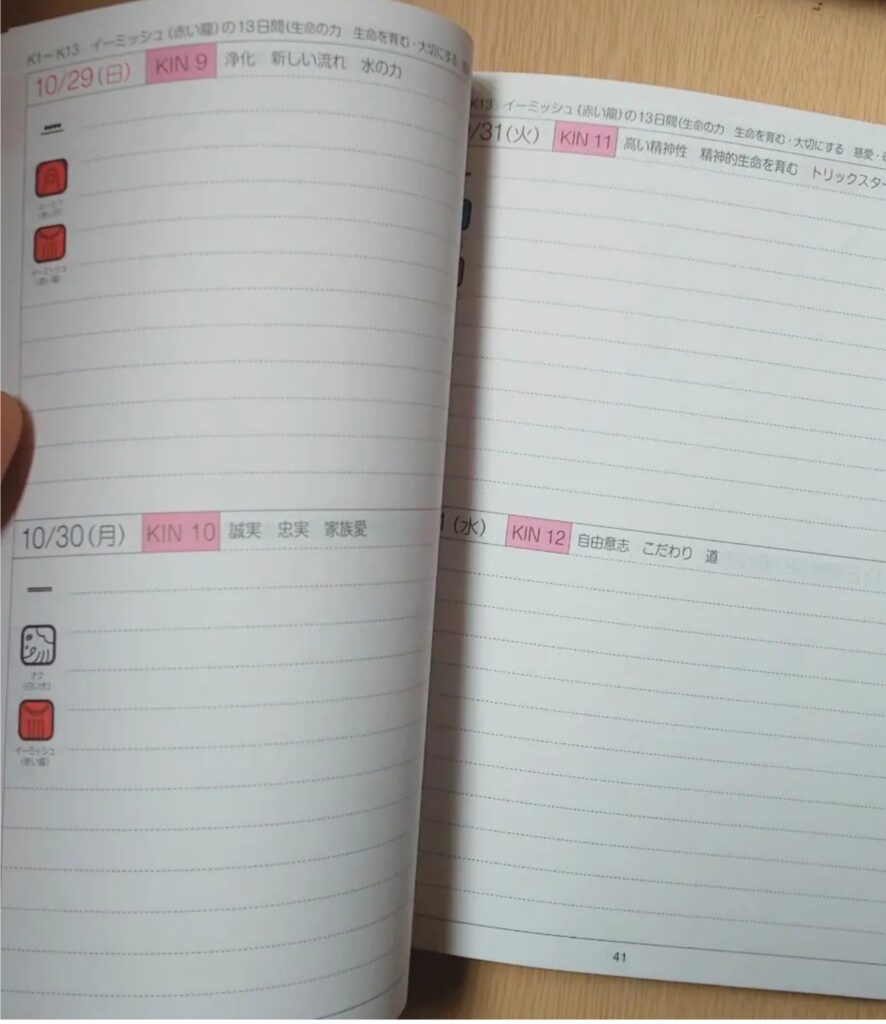 K1～K13 イーミッシュ(赤い龍)の13日間(生命の力 生命を育む・大切にする
10/29(日) KIN 9 浄化 新しい流れ 水の力
イーミッシュ
(赤い龍)
10/30(月) KIN 10 誠実 忠実 家族愛
オク
(白い犬)
イーミッシュ
(赤い龍)
K13 イーミッシュ(赤い龍)の13日間(生命の力 生命を育む・大切にする 慈愛・
/31(火) KIN 11 高い精神性 精神的生命を育む トリックスター
1(水) KIN 12 自由意志 こだわり 道
41